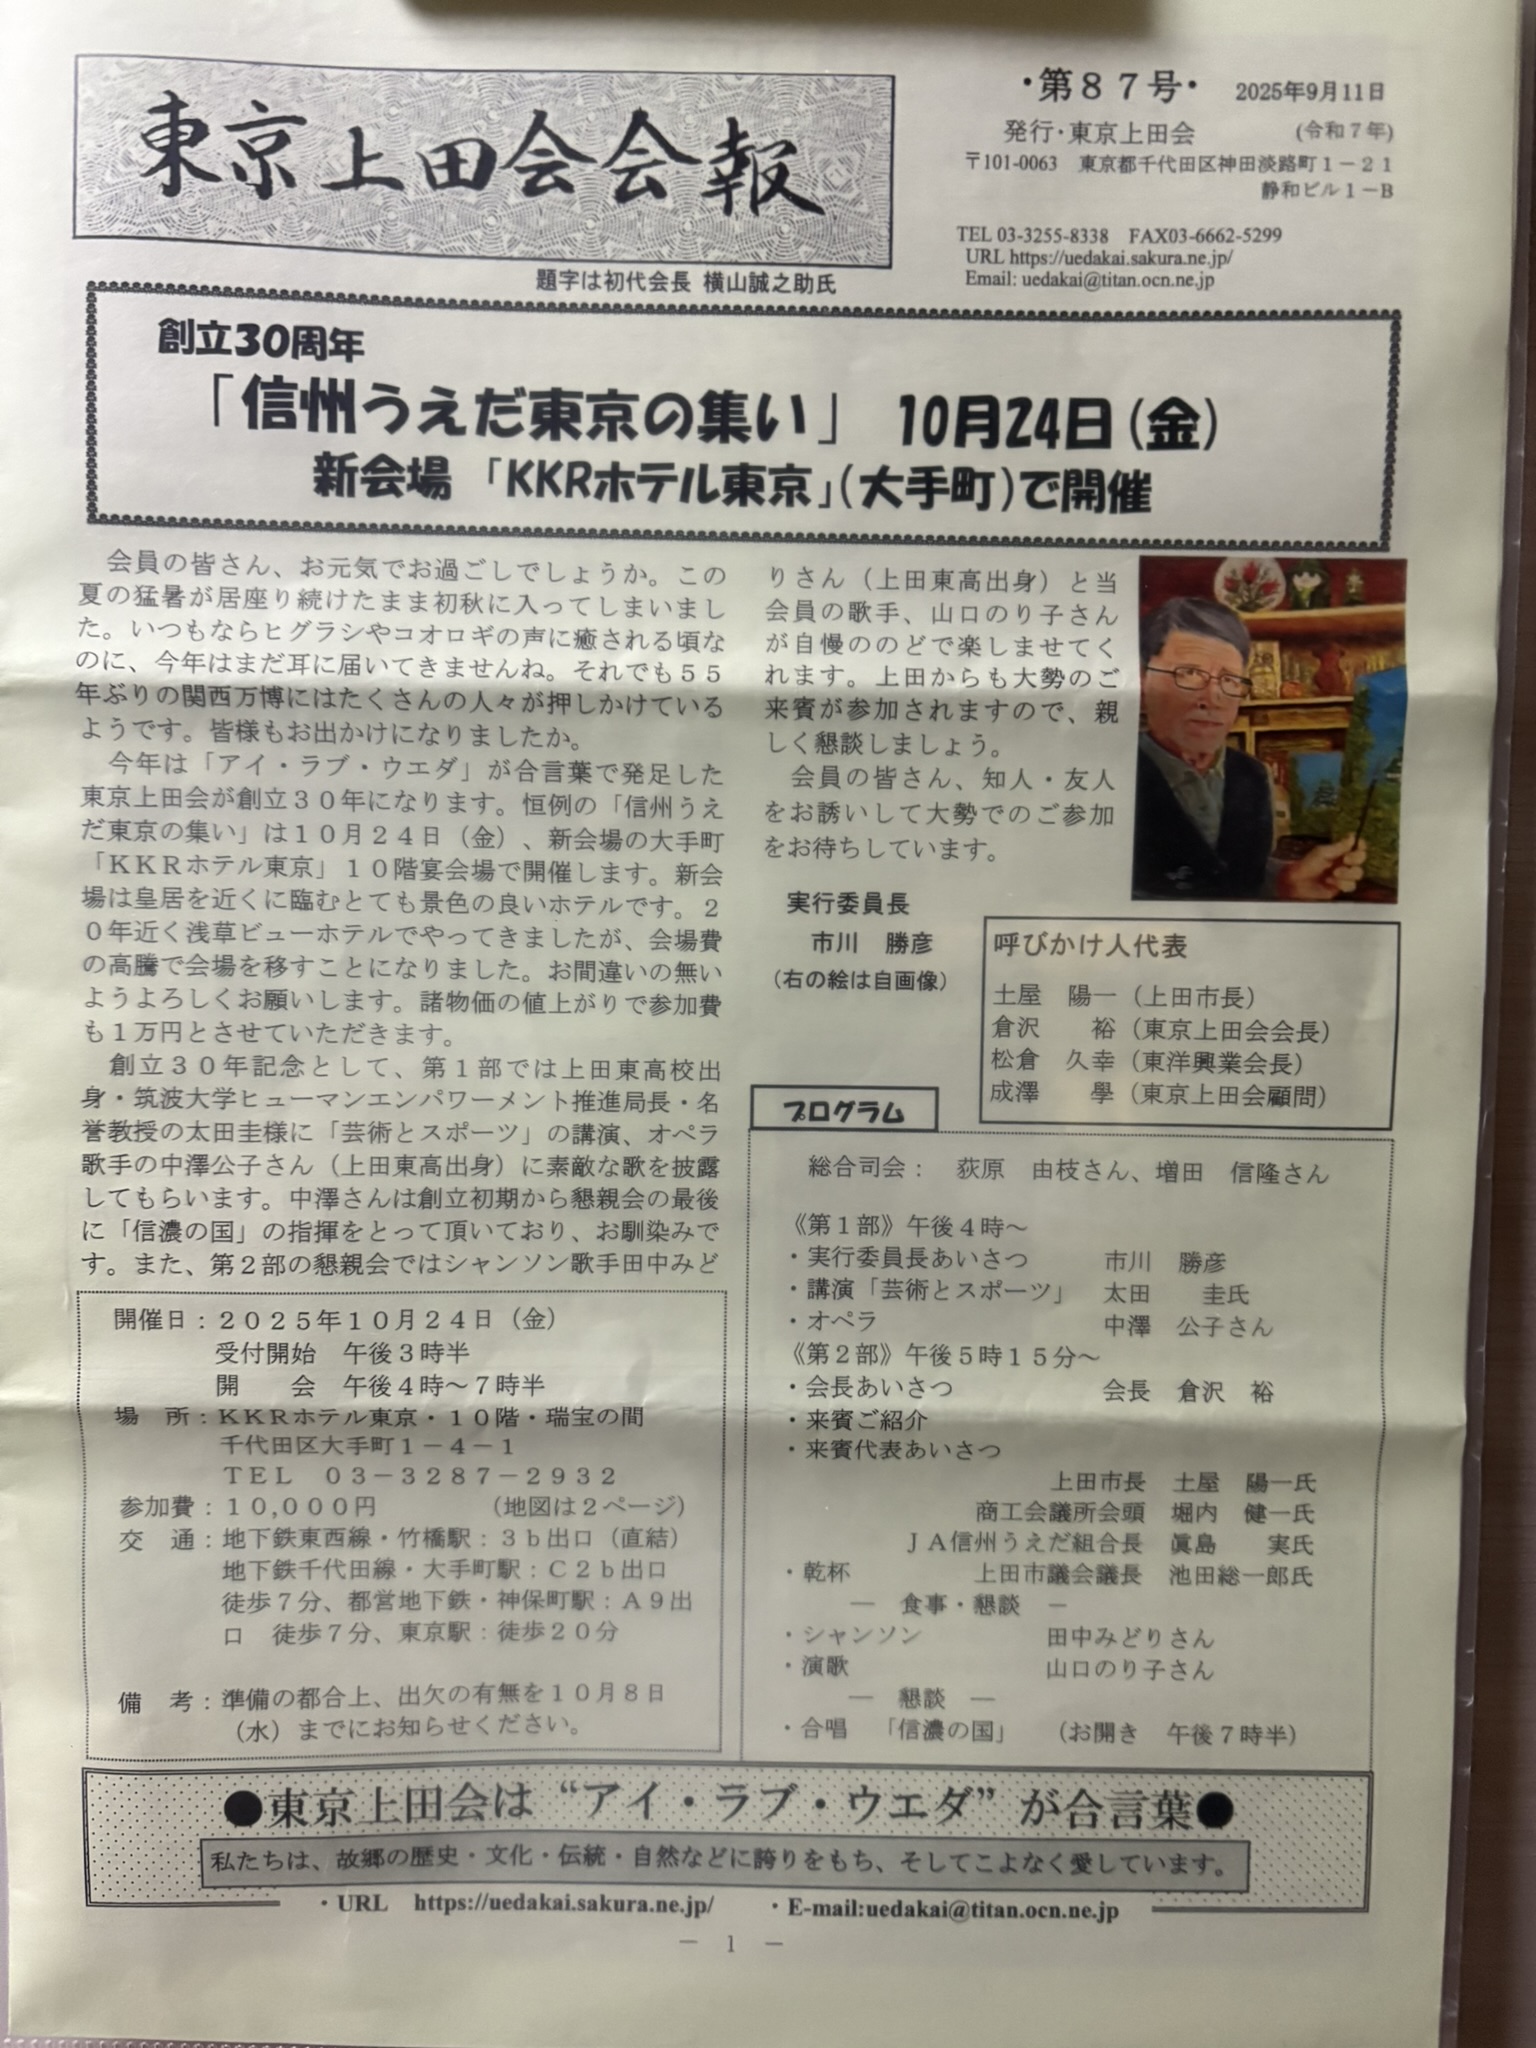 東京上田会会報
題字は初代会長 横山誠之助氏
・第87号・ 2025年9月11日
発行・東京上田会 (令和7年)
〒101-0063 東京都千代田区神田淡路町1-21
静和ビル1-B
TEL 03-3255-8338 FAX03-6662-5299
URL https://uedakai.sakura.ne.jp/
Email: uedakai@titan.ocn.ne.jp
創立30周年
「信州うえだ東京の集い」 10月24日(金)
新会場 「KKRホテル東京」(大手町)で開催
会員の皆さん、お元気でお過ごしでしょうか。この
夏の猛暑が居座り続けたまま初秋に入ってしまいまし
た。いつもならヒグラシやコオロギの声に癒される頃な
のに、今年はまだ耳に届いてきませんね。それでも55
年ぶりの関西万博にはたくさんの人々が押しかけている
ようです。皆様もお出かけになりましたか。
今年は「アイ・ラブ・ウエダ」が合言葉で発足した
東京上田会が創立30年になります。恒例の「信州うえ
だ東京の集い」は10月24日(金)、新会場の大手町
「KKRホテル東京」10階宴会場で開催します。新会
場は皇居を近くに臨むとても景色の良いホテルです。2
0年近く浅草ビューホテルでやってきましたが、会場費
の高騰で会場を移すことになりました。お間違いの無い
ようよろしくお願いします。諸物価の値上がりで参加費
も1万円とさせていただきます。
創立30年記念として、第1部では上田東高校出
身・筑波大学ヒューマンエンパワーメント推進局長・名
誉教授の太田圭様に「芸術とスポーツ」の講演、オペラ
歌手の中澤公子さん(上田東高出身)に素敵な歌を披露
してもらいます。中澤さんは創立初期から懇親会の最後
に「信濃の国」の指揮をとって頂いており、お馴染みで
す。また、第2部の懇親会ではシャンソン歌手田中みど
りさん(上田東高出身)と当
会員の歌手、山口のり子さん
が自慢ののどで楽しませてく
れます。上田からも大勢のご
来賓が参加されますので、親
しく懇談しましょう。
会員の皆さん、知人・友人
をお誘いして大勢でのご参加
をお待ちしています。
実行委員長
市川 勝彦
(右の絵は自画像)
呼びかけ人代表
土屋 陽一(上田市長)
倉沢 裕(東京上田会会長)
松倉 久幸(東洋興業会長)
成澤 學(東京上田会顧問)
開催日:2025年10月24日(金)
受付開始 午後3時半
開 会 午後4時~7時半
場 所:KKRホテル東京・10階・瑞宝の間
千代田区大手町1-4-1
TEL 03-3287-2932
参加費:10,000円 (地図は2ページ)
交 通:地下鉄東西線・竹橋駅:3b出口(直結)
地下鉄千代田線・大手町駅:C2b出口
徒歩7分、都営地下鉄・神保町駅:A9出
口 徒歩7分、東京駅:徒歩20分
備 考:準備の都合上、出欠の有無を10月8日
(水)までにお知らせください。
プログラム
総合司会: 荻原 由枝さん、増田 信隆さん
《第1部》午後4時~
・実行委員長あいさつ 市川 勝彦
・講演「芸術とスポーツ」 太田 圭氏
・オペラ 中澤 公子さん
《第2部》午後5時15分~
・会長あいさつ 会長 倉沢 裕
・来賓ご紹介
・来賓代表あいさつ
上田市長 土屋 陽一氏
商工会議所会頭 堀内 健一氏
JA信州うえだ組合長 眞島 実氏
・乾杯 上田市議会議長 池田総一郎氏
― 食事・懇談 ―
・シャンソン 田中みどりさん
・演歌 山口のり子さん
― 懇談 ―
・合唱 「信濃の国」 (お開き 午後7時半)
●東京上田会は“アイ・ラブ・ウエダ”が合言葉●
私たちは、故郷の歴史・文化・伝統・自然などに誇りをもち、そしてこよなく愛しています。
・URL https://uedakai.sakura.ne.jp/ ・E-mail:uedakai@titan.ocn.ne.jp
― 1 ―